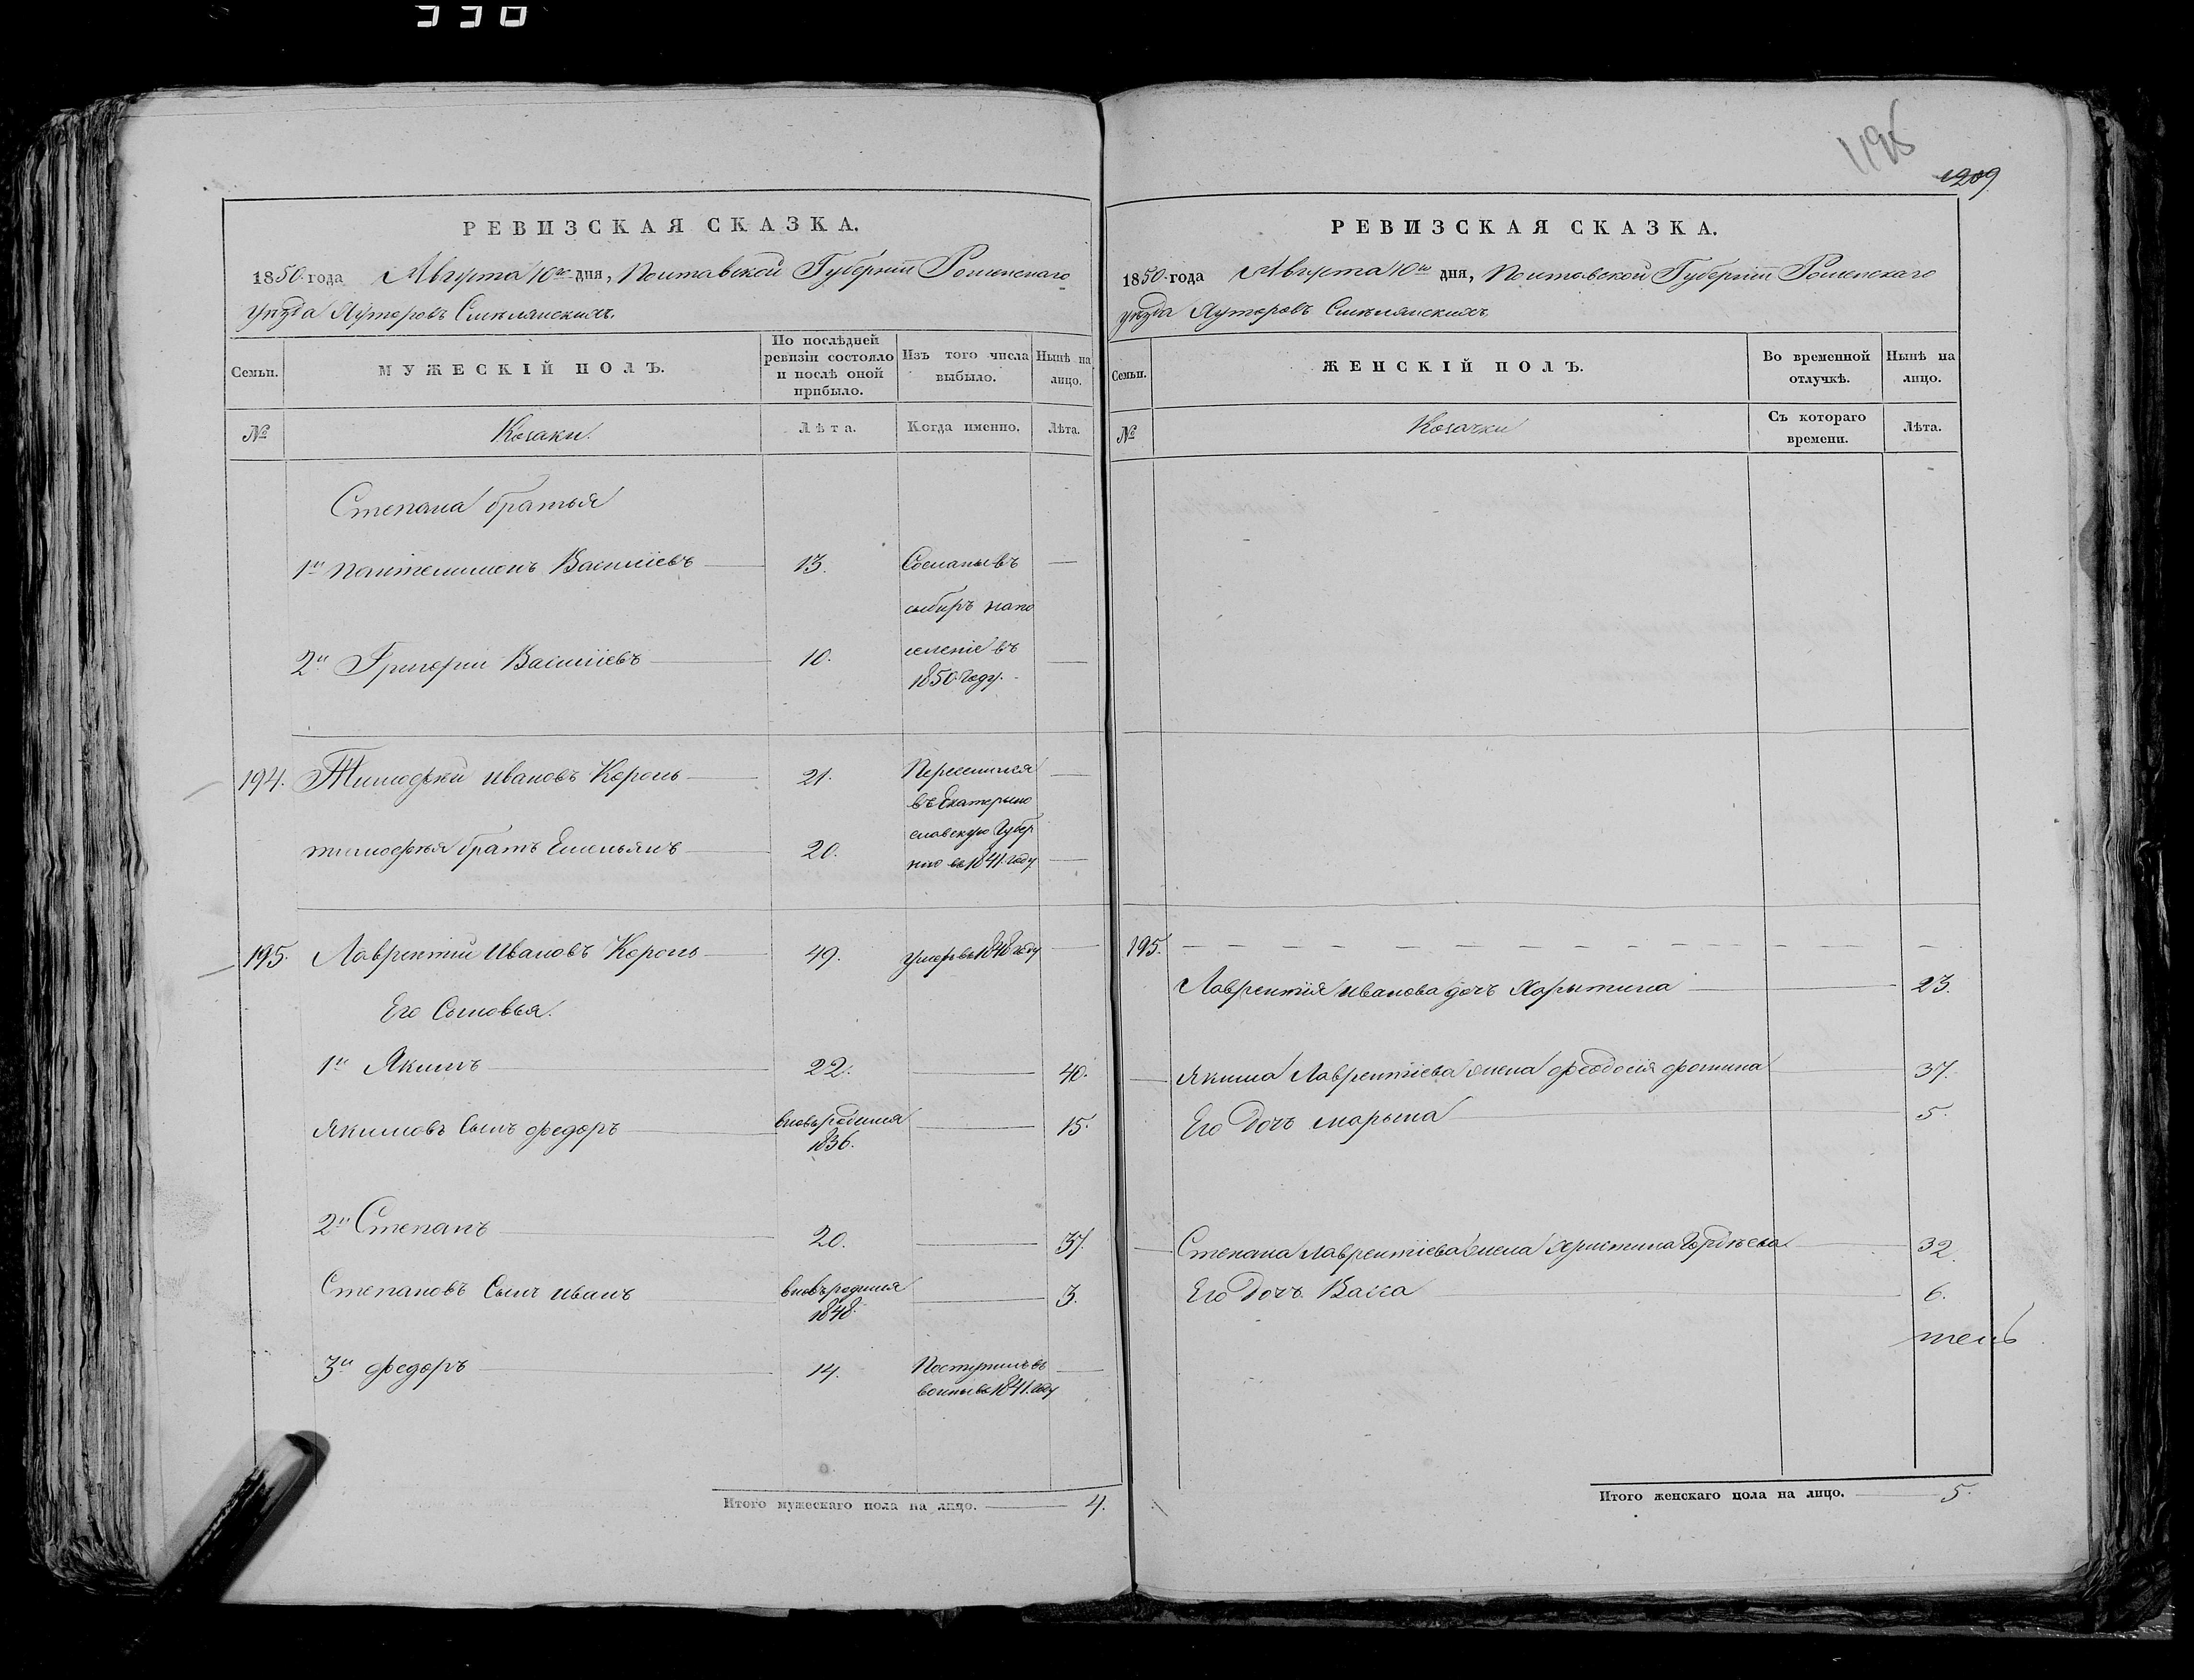 330
РЕВИЗСКАЯ СКАЗКА.
1850 года Августа 10го дня, Полтавской Губернии Роменскаго
уезда Хуторовъ Смелянскихъ.
Семьи.
МУЖЕСКІЙ ПОЛЪ.
По послѣдней ревизіи состояло и послѣ оной прибыло.
Изъ того числа выбыло.
Нынѣ на лицо.
№
Козаки.
Лѣта.
Когда именно.
Лѣта.
Степана братья
1й Пантелимонъ Василіевъ 13. Сосланы въ
сыбиръ на по
2й Григорий Василіевъ 10. селеніе въ
1850 году.
194. Тимофей Ивановъ Король 21. Переселился
въ Екатерино
славскую Губер
тимофея братъ Емельянъ 20. нию въ 1841. году
195. Лаврентий Ивановъ Король 49. умеръ въ 1848 году
Его Сыновья.
1й Якимъ 22. 40.
Якимовъ сынъ федоръ вновь родился 15.
1836.
2й Степанъ 20. 37.
Степановъ Сынъ иванъ вновь родился 3.
1848.
3й федоръ 14. Поступилъ въ
воины въ 1841. году
Итого мужескаго пола на лицо. 4.
1195
1209
РЕВИЗСКАЯ СКАЗКА.
1850 года Августа 10го дня, Полтавской Губернии Роменскаго
уезда Хуторовъ Смелянскихъ
Семьи.
ЖЕНСКІЙ ПОЛЪ.
Во временной отлучкѣ.
Нынѣ на лицо.
№
Козачки
Съ котораго времени.
Лѣта.
195.
Лаврентія Иванова дочъ Харытина 23.
Якима Лаврентіева жена феодосія фомина 37.
Его дочъ марына 5.
Степана лаврентіева жена Христина Гордѣева 32.
Его дочъ Васса 6.
Итого женскаго пола на лицо. 5.